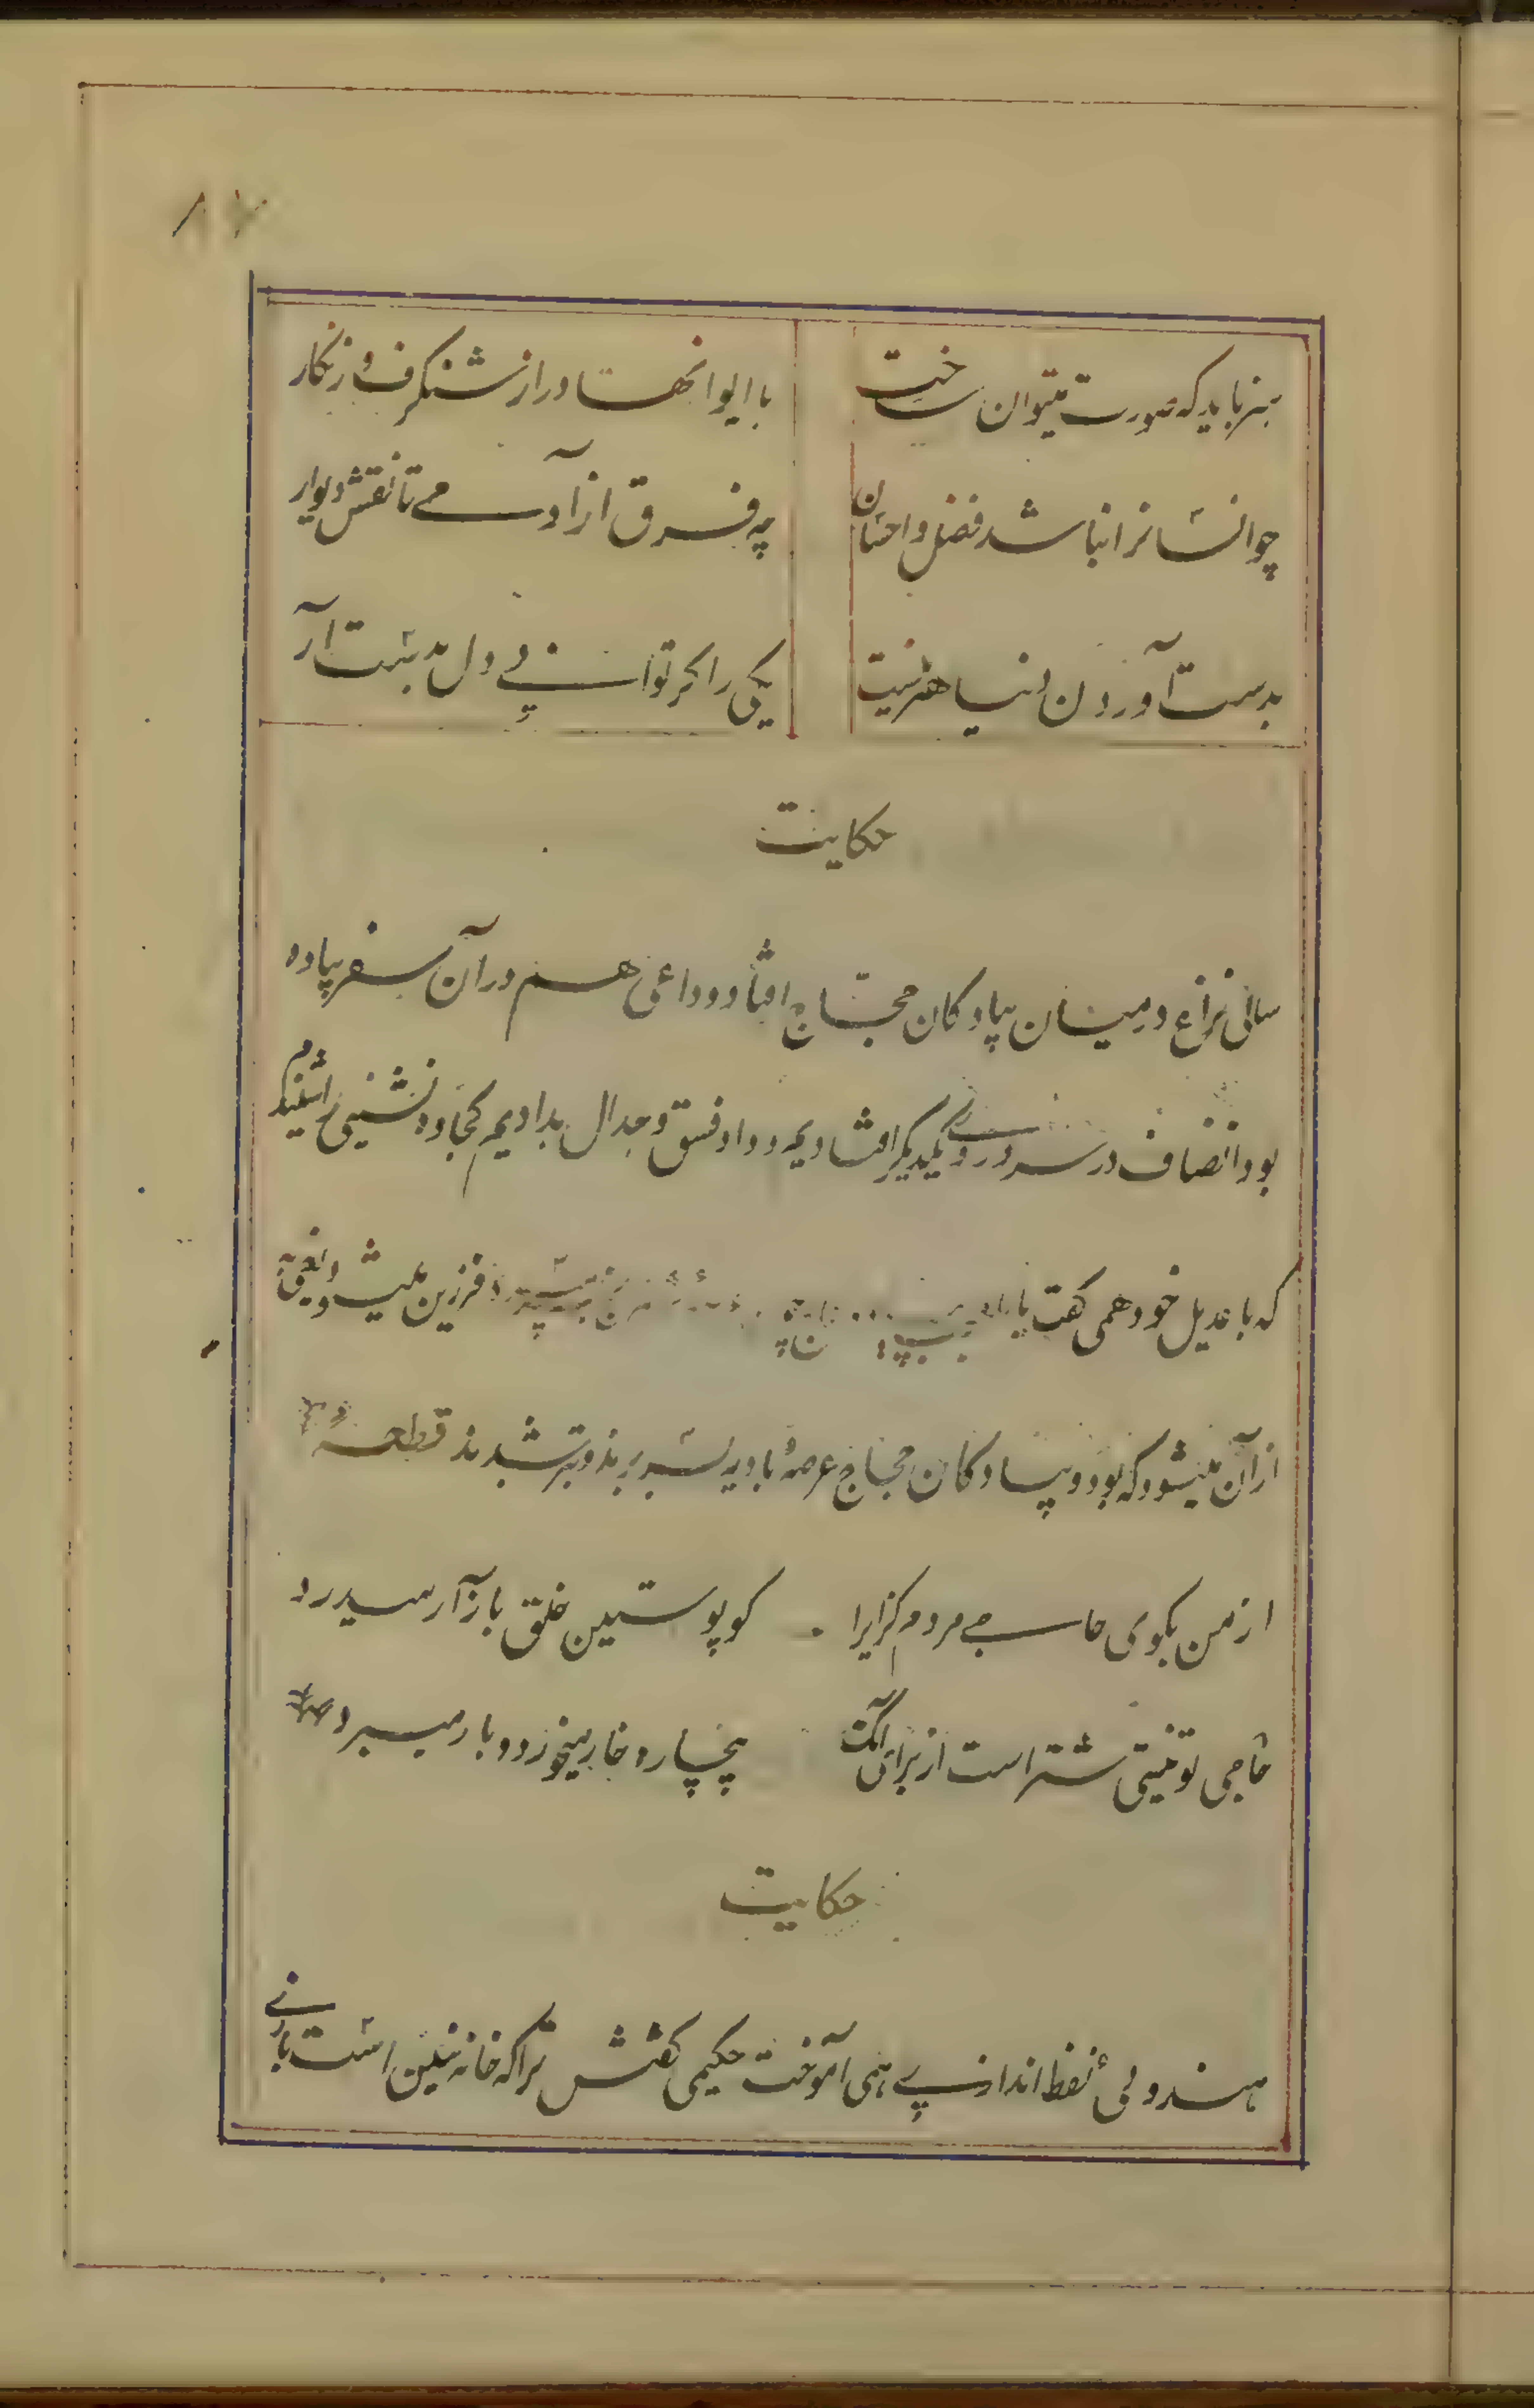 ۸۷
هنر باید که صورت میتوان ساخت با ایوانها در از شنکرف و زنکار
چو انسانرا نباشد فضل و احسان چه فرق از آدمی تا نقش دیوار
بدست آوردن دنیا هنر نیست یکی را کر توانی دل بدست آر
حکایت
سالی نزاع در میان پیادکان حجاج افتاد و داعی هم در آن سفر پیاده
بود انصاف در سر و روی یکدیکر افتادیم و داد فسق و جدال بدادیم کجاوه نشینی را شنیدم
که با عدیل خود همی کفت یا فرزین میشود یعنی به
از آن میشود که بود و پیادکان حجاج عرصهٔ بادیه بسر بردند و بتر شدند قطعه
از من بکوی حاجی مردم کزایرا کو پوستین خلق بازار میدرد
حاجی تو نیستی شتر است از برای آنک بیچاره خار میخورد و بار میبرد
حکایت
هندوئی نفط اندازی همی آموخت حکیمی کفتش ترا که خانه نیین است بازی